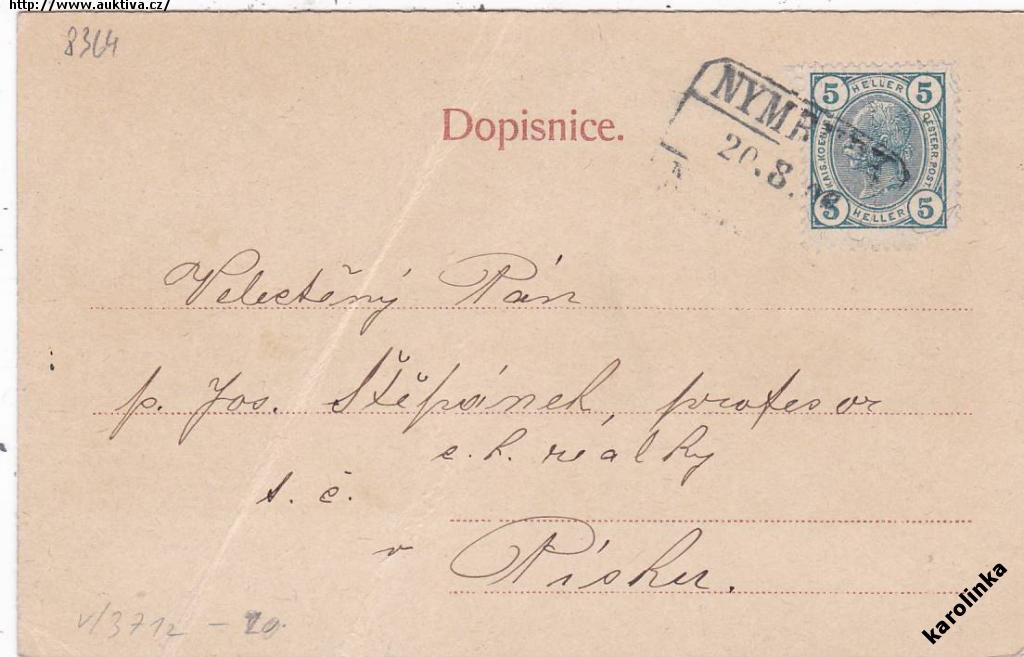 http://www.auktiva.cz/
8364
Dopisnice.
5 HELLER 5
KAIS. KOENIGL. OESTERR. POST.
5 HELLER 5
20.8.
Velectěný Pán
p. Jos. Štěpánek, profesor
c. k. reálky
t. č.
v Písku.
V/3712 - 20.
karolinka